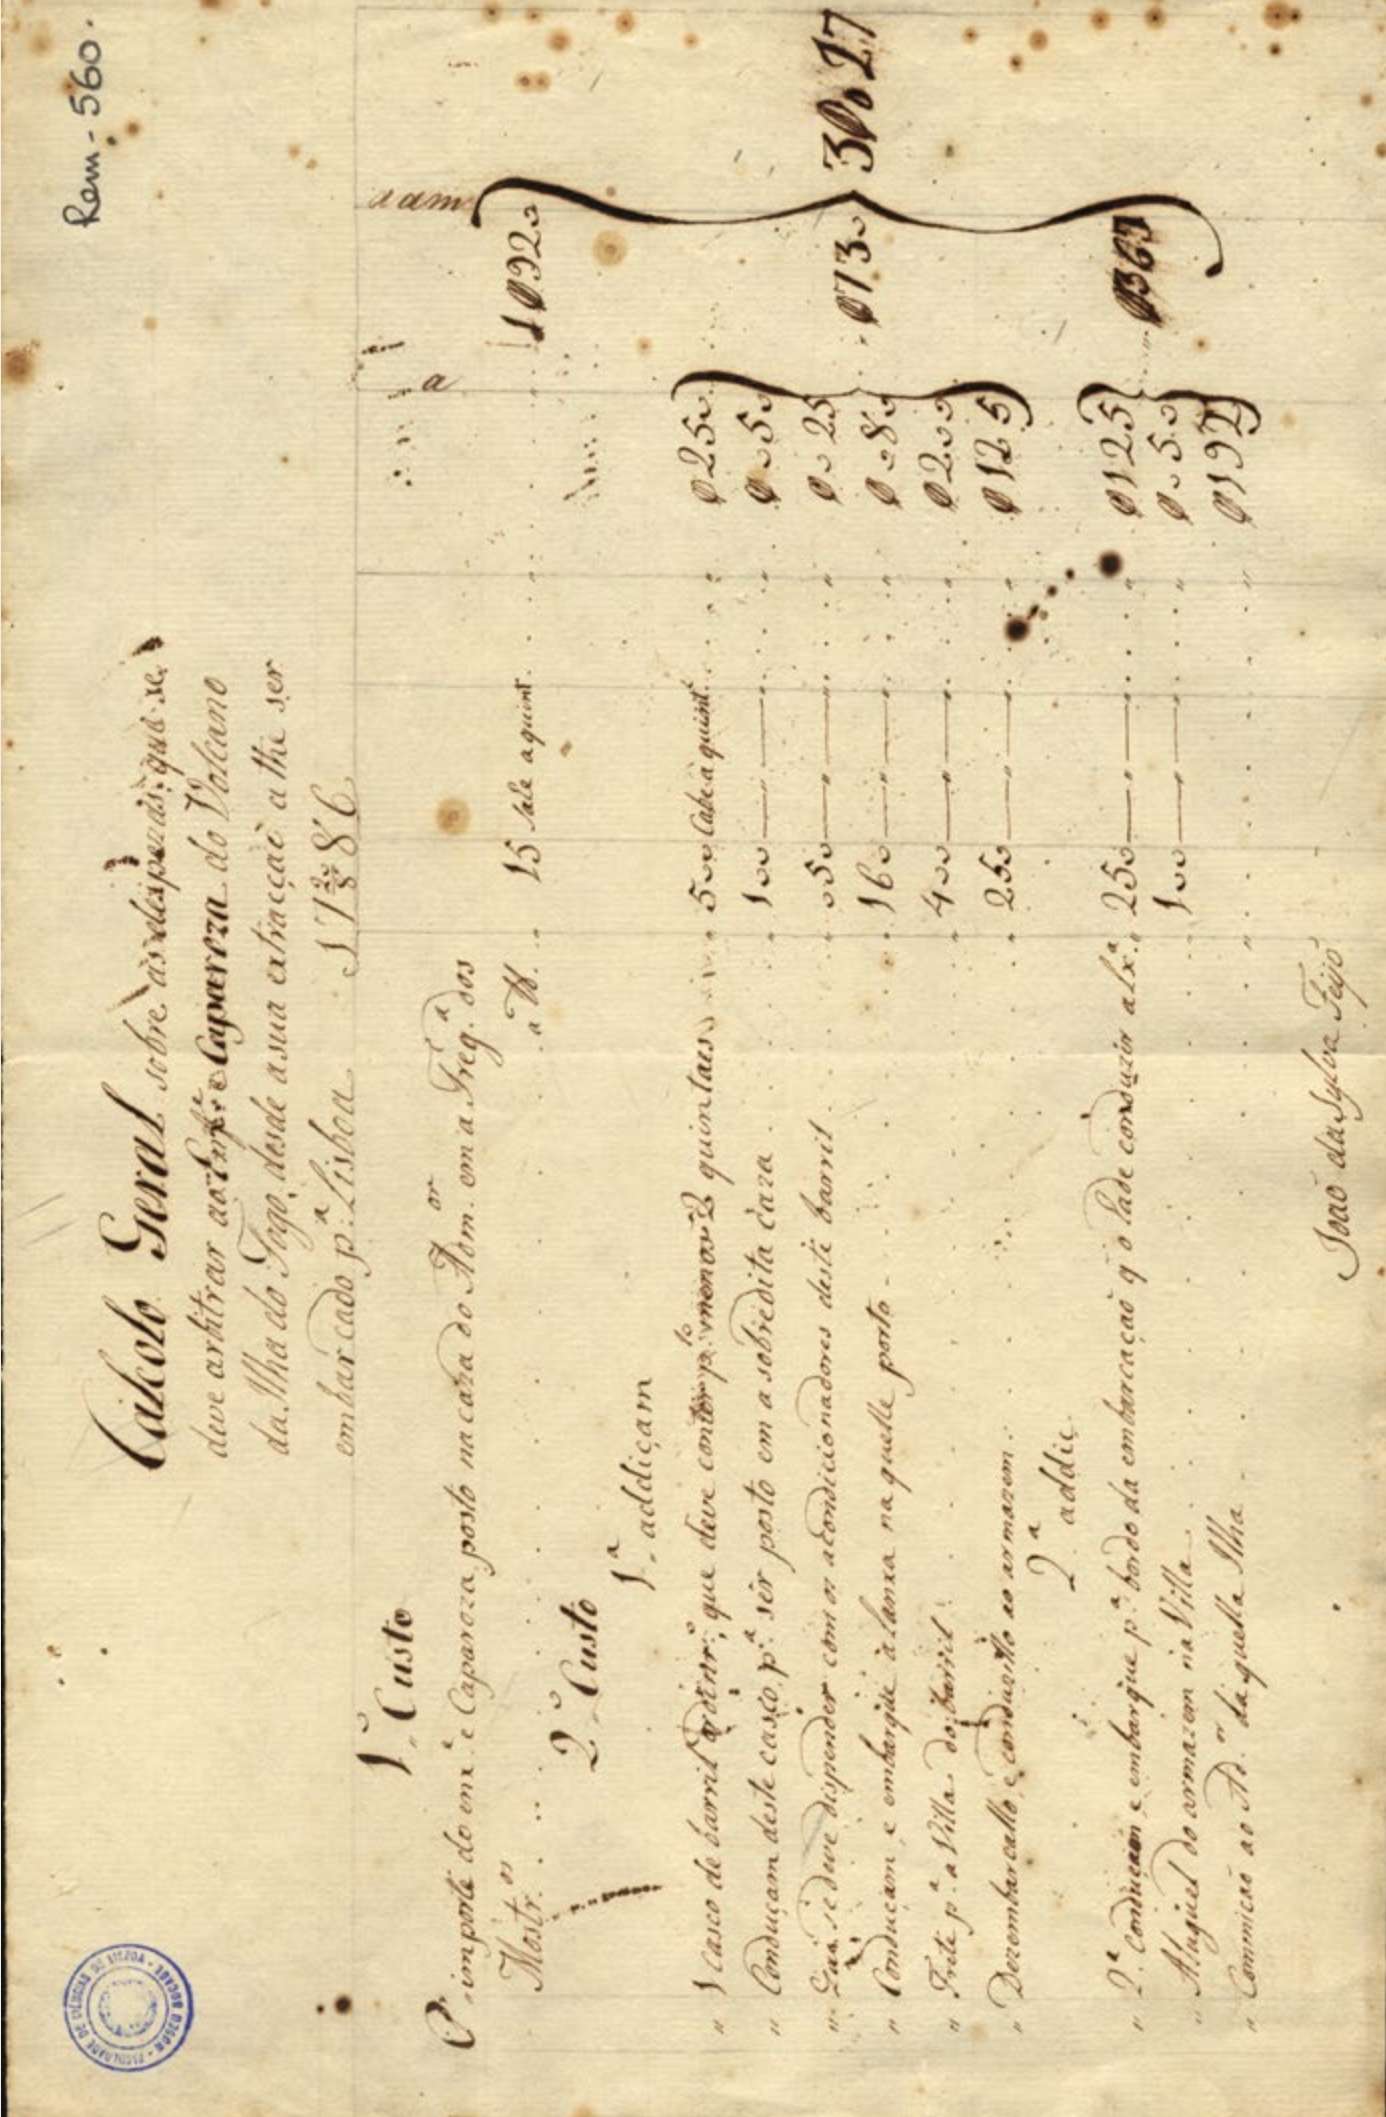 Rem-560.
MUSEU BOCAGE
FACULDADE DE CIÊNCIAS DE LISBOA
Calcolo Geral sobre as despezas, que se
deve arbitrar ao Enx.ᵉ e Caparoza do Volcano
da Ilha do Fogo, desde a sua extracçaõ athe ser
embarcado p.ᵃ Lisboa 1786
1.º Custo
importe do enx.ᵉ e Caparoza posto na caza do Adm.ᵒʳ em a Freg.ᵃ dos
Mostr.ᵒˢ a ℔ 15 sale a quint. 1$920
2.º Custo
1.ᵃ addiçam
" 1 casco de barril ordinr.º, que deve conter p.ᵗᵒ menos 2 quintaes 500 Cabe a quint. $250
" Conduçam deste casco p.ᵃ ser posto em a sobredita caza " 100 " $050
" se deve dispender com os acondicionadores deste barril " 050 " $025
" Conduçam, e embarque á lanxa naquelle porto " 160 " $080
" Frete p.ᵃ a Villa do barril " 400 " $200
" Dezembarcallo, e conduzillo ao armazem " 250 " $125
$730
2.ᵃ addiç
" 2.ᵃ Conduçam e embarque p.ᵃ bordo da embarcaçaõ q̃ o hade conduzir a lx.ᵃ " 250 " $125
" Aluguel do armazem na Villa " 100 " $050
" Commicaõ ao Ad.ᵒʳ daquella Ilha " " $192
$367
3$027
Joaõ da Sylva Feijó